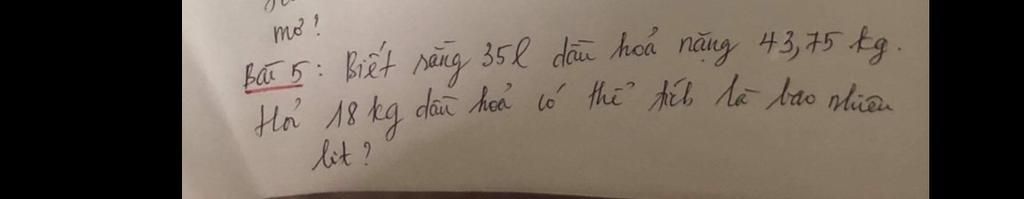 mơ?
Bài 5: Biết rằng 35l dầu hoả nặng 43,75 kg.
Hỏi 18 kg dầu hoả có thể tích là bao nhiêu
lít?